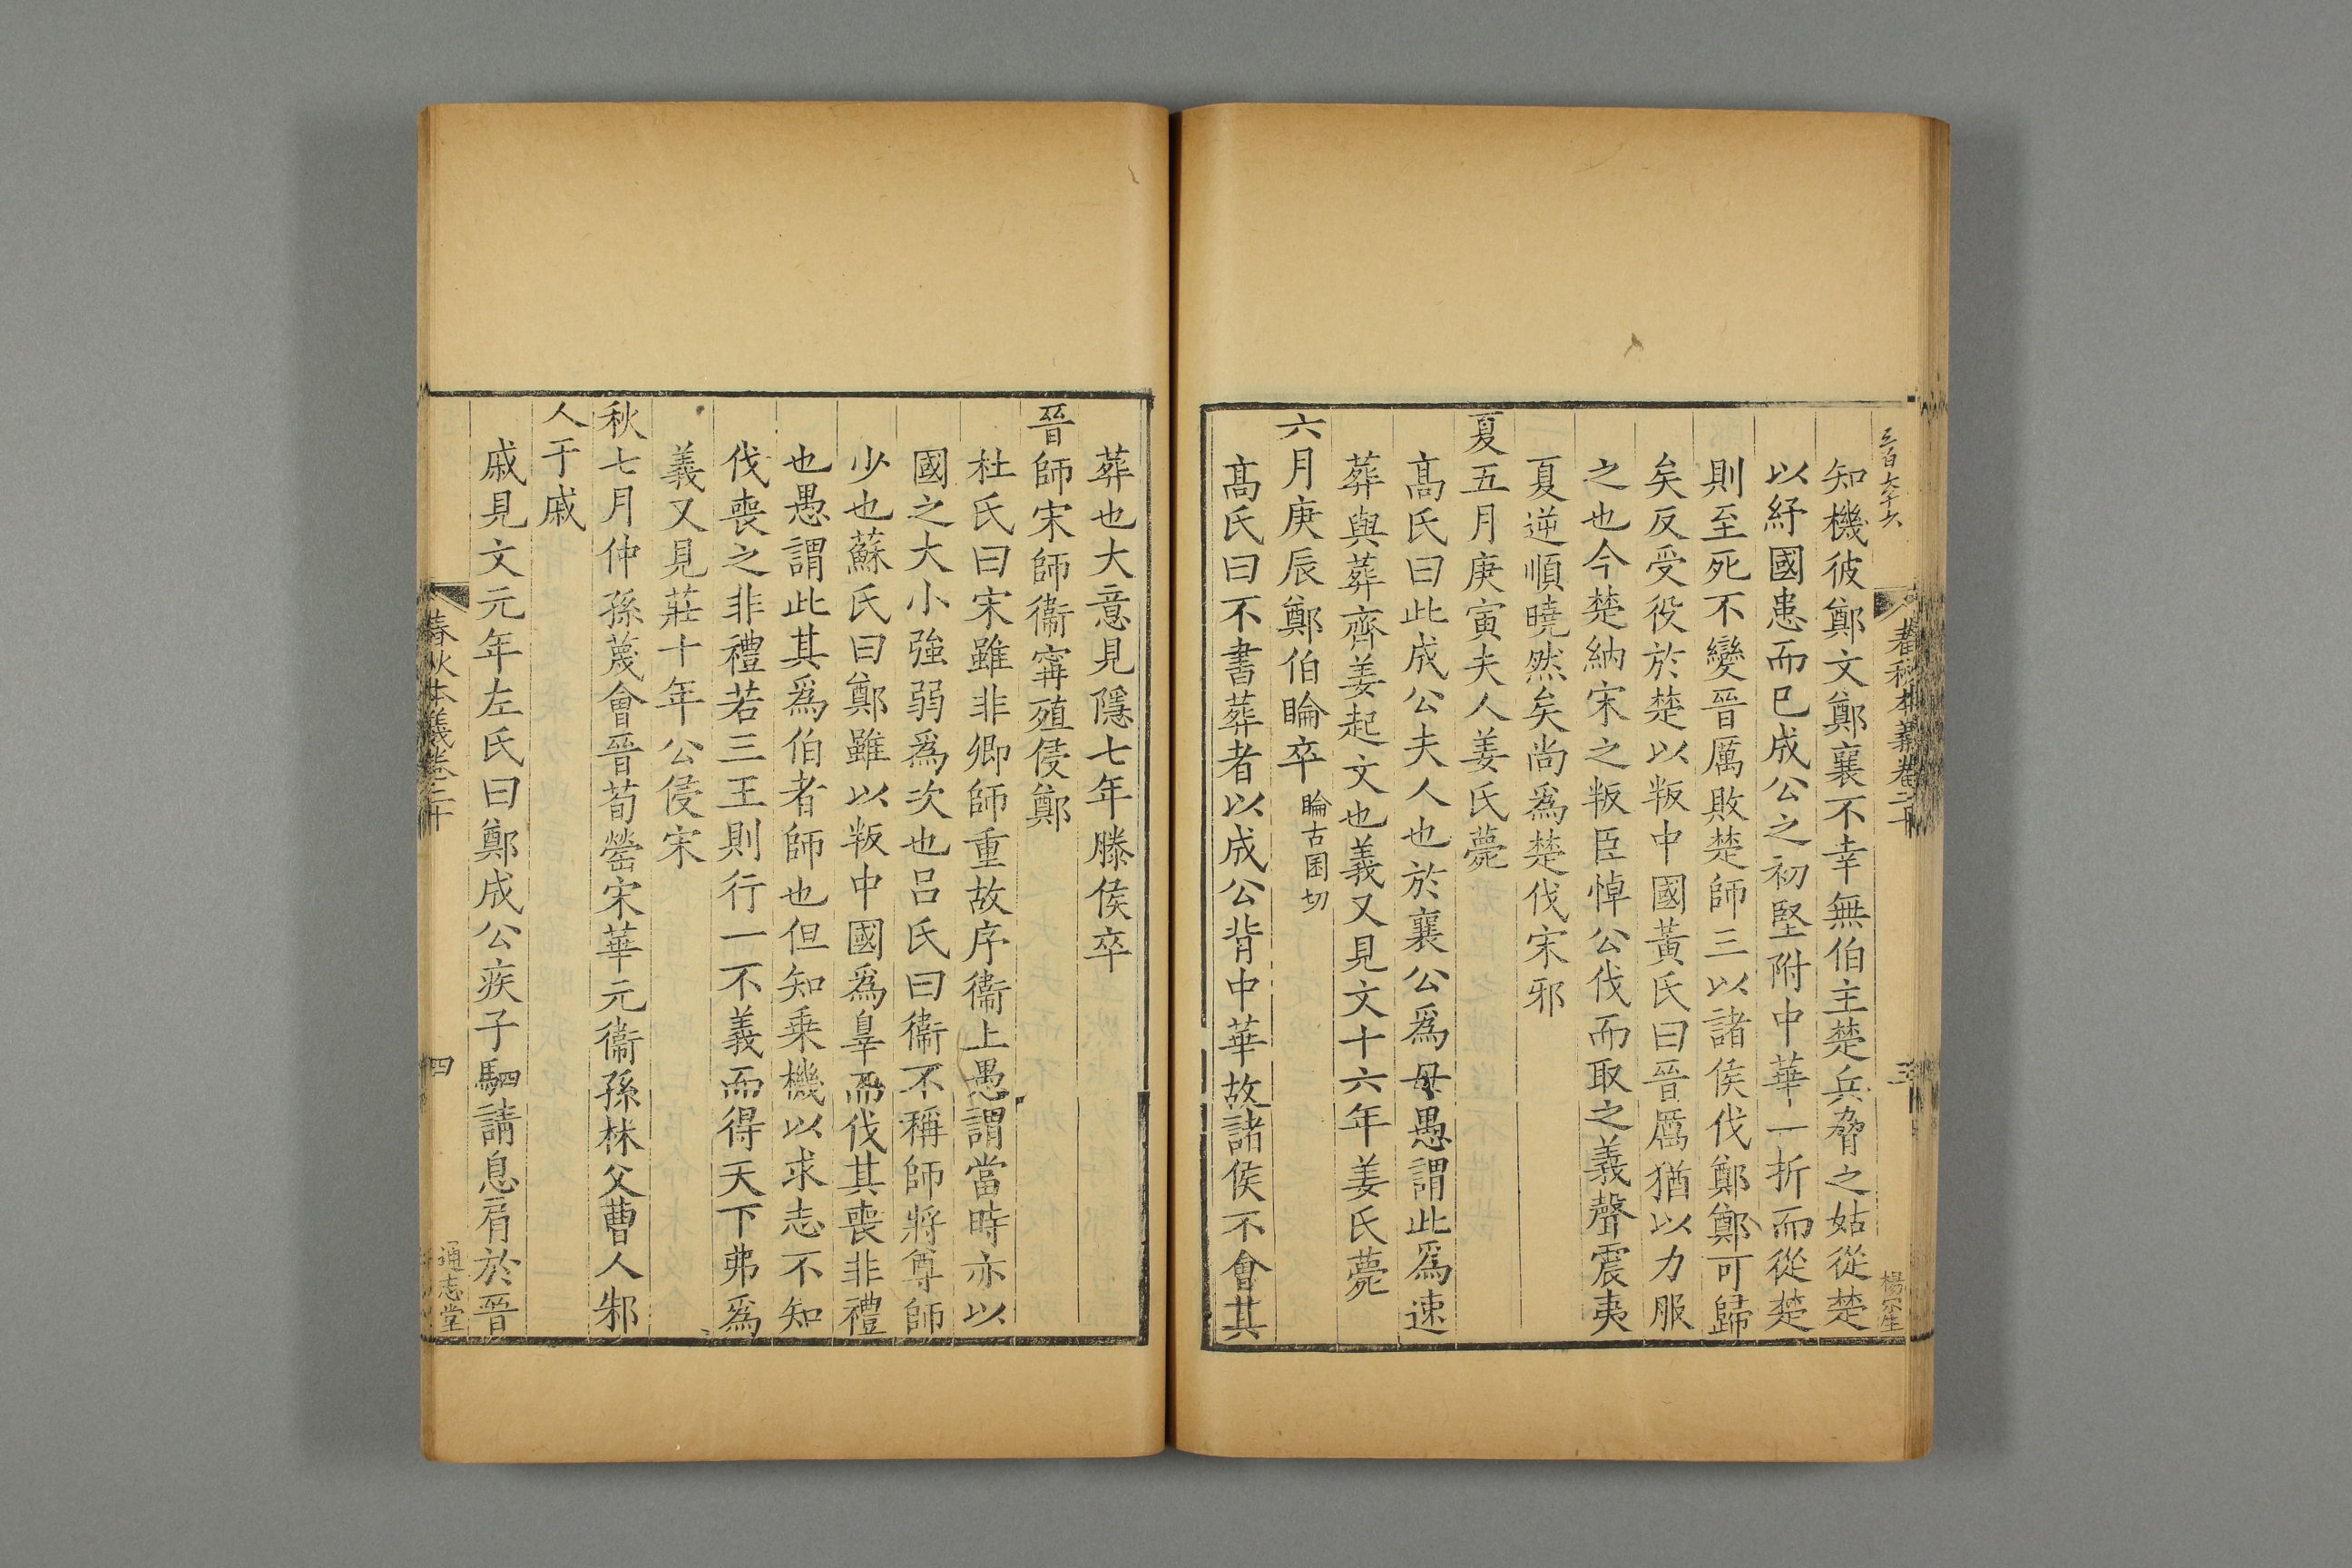 三百六十六
春秋本義卷二十
三
楊宗生
知機彼鄭文鄭襄不幸無伯主楚兵脅之姑從楚
以紓國患而已成公之初堅附中華一折而從楚
則至死不變晉厲敗楚師三以諸侯伐鄭鄭可歸
矣反受役於楚以叛中國黃氏曰晉厲猶以力服
之也今楚納宋之叛臣悼公伐而取之義聲震夷
夏逆順曉然矣尚爲楚伐宋邪
夏五月庚寅夫人姜氏薨
高氏曰此成公夫人也於襄公爲母愚謂此爲速
葬與葬齊姜起文也義又見文十六年姜氏薨
六月庚辰鄭伯睔卒 睔古囷切
高氏曰不書葬者以成公背中華故諸侯不會其
葬也大意見隱七年滕侯卒
晉師宋師衞甯殖侵鄭
杜氏曰宋雖非卿師重故序衞上愚謂當時亦以
國之大小強弱爲次也呂氏曰衞不稱師將尊師
少也蘇氏曰鄭雖以叛中國爲辠而伐其喪非禮
也愚謂此其爲伯者師也但知乗機以求志不知
伐喪之非禮若三王則行一不義而得天下弗爲
義又見莊十年公侵宋
秋七月仲孫蔑會晉荀罃宋華元衞孫林父曹人邾
人于戚
戚見文元年左氏曰鄭成公疾子駟請息肩於晉
春秋本義卷二十
四
通志堂